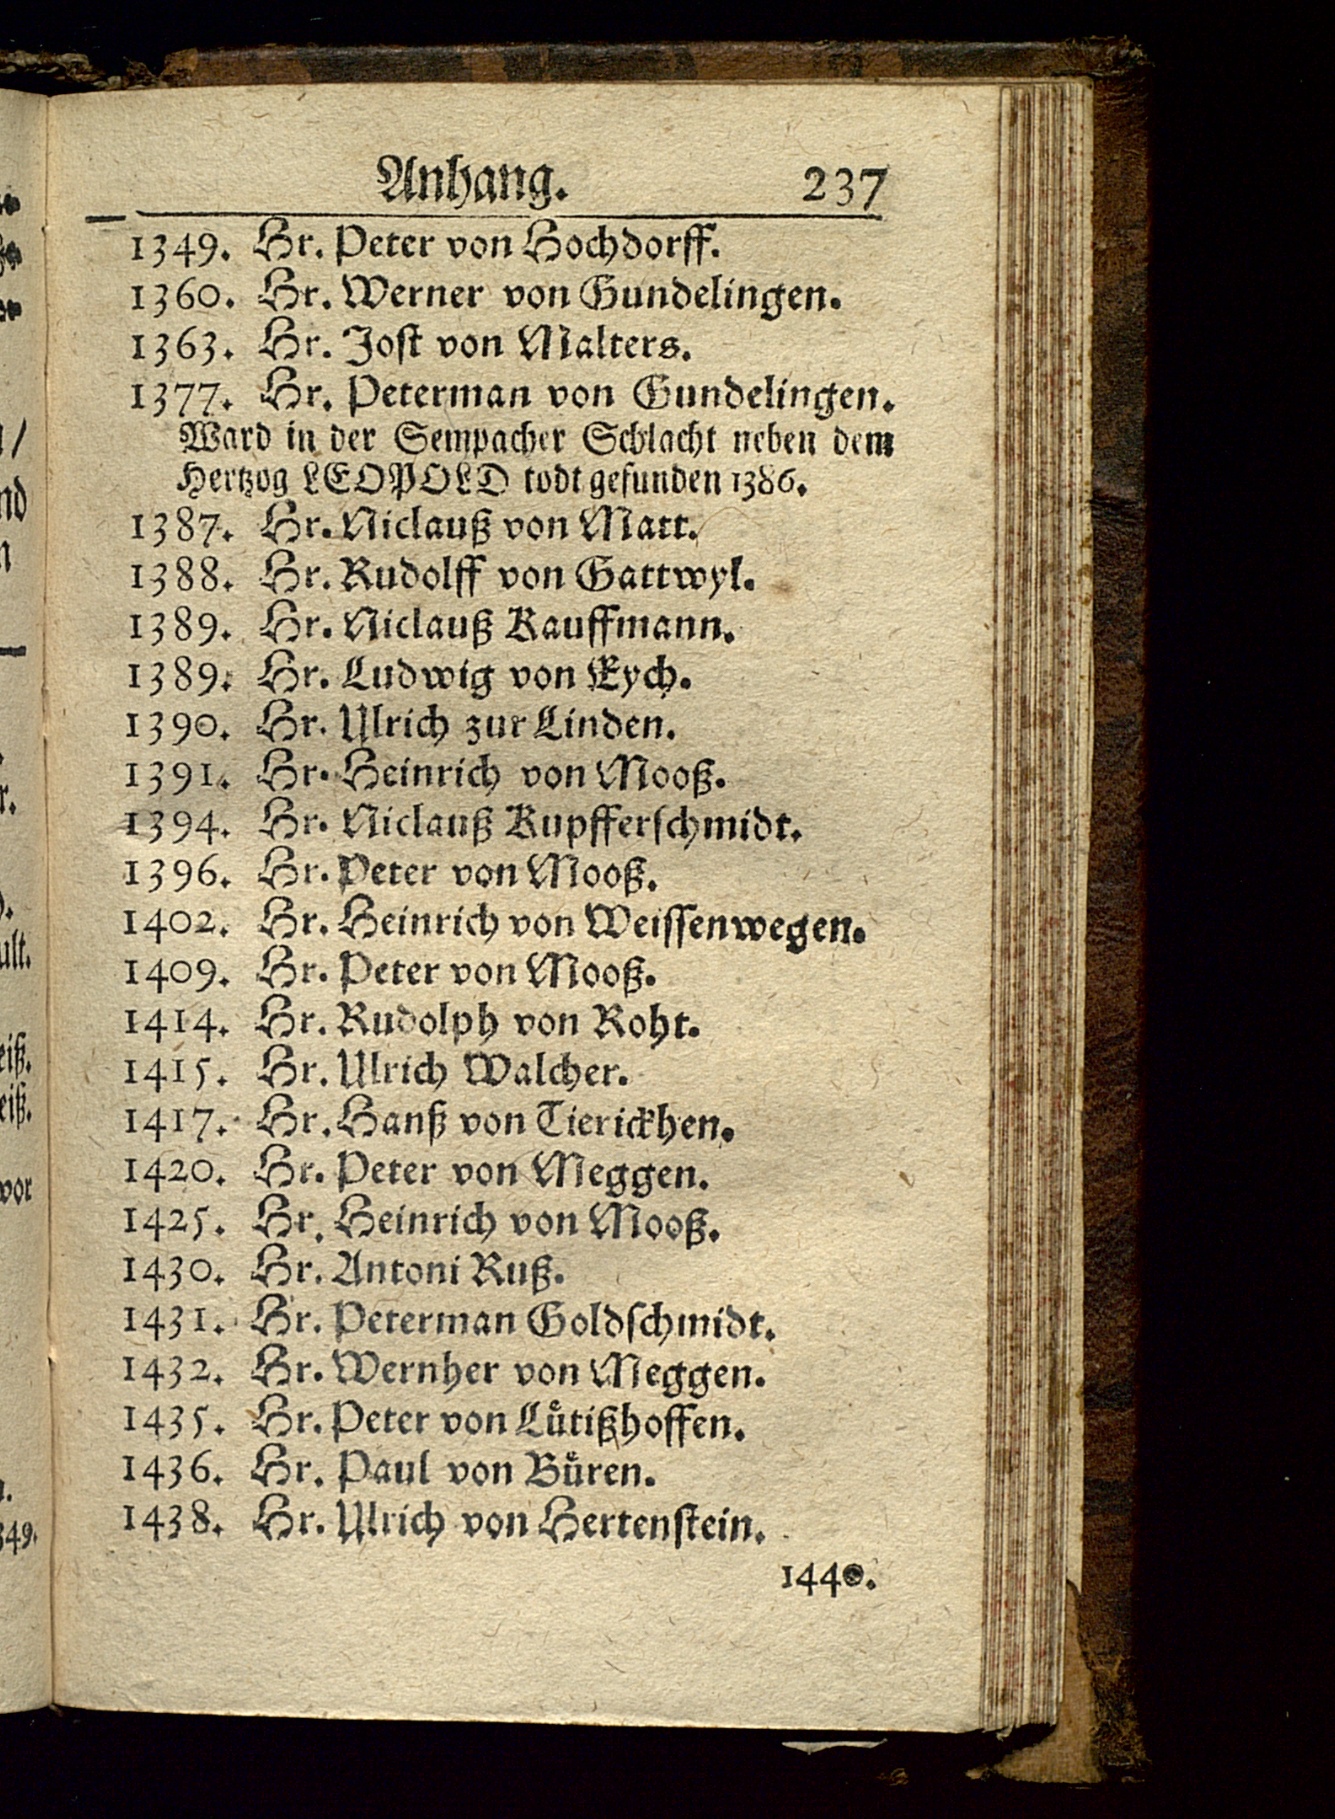 Anhang. 237
1349. Hr. Peter von Hochdorff.
1360. Hr. Werner von Gundelingen.
1363. Hr. Jost von Malters.
1377. Hr. Peterman von Gundelingen.
Ward in der Sempacher Schlacht neben dem
Hertzog LEOPOLD todt gefunden 1386.
1387. Hr. Niclauß von Matt.
1388. Hr. Rudolff von Gattwyl.
1389. Hr. Niclauß Kauffmann.
1389. Hr. Ludwig von Eych.
1390. Hr. Ulrich zur Linden.
1391. Hr. Heinrich von Mooß.
1394. Hr. Niclauß Kupfferschmidt.
1396. Hr. Peter von Mooß.
1402. Hr. Heinrich von Weissenwegen.
1409. Hr. Peter von Mooß.
1414. Hr. Rudolph von Roht.
1415. Hr. Ulrich Walcher.
1417. Hr. Hanß von Tierickhen.
1420. Hr. Peter von Meggen.
1425. Hr. Heinrich von Mooß.
1430. Hr. Antoni Ruß.
1431. Hr. Peterman Goldschmidt.
1432. Hr. Wernher von Meggen.
1435. Hr. Peter von Lütißhoffen.
1436. Hr. Paul von Büren.
1438. Hr. Ulrich von Hertenstein.
1440.